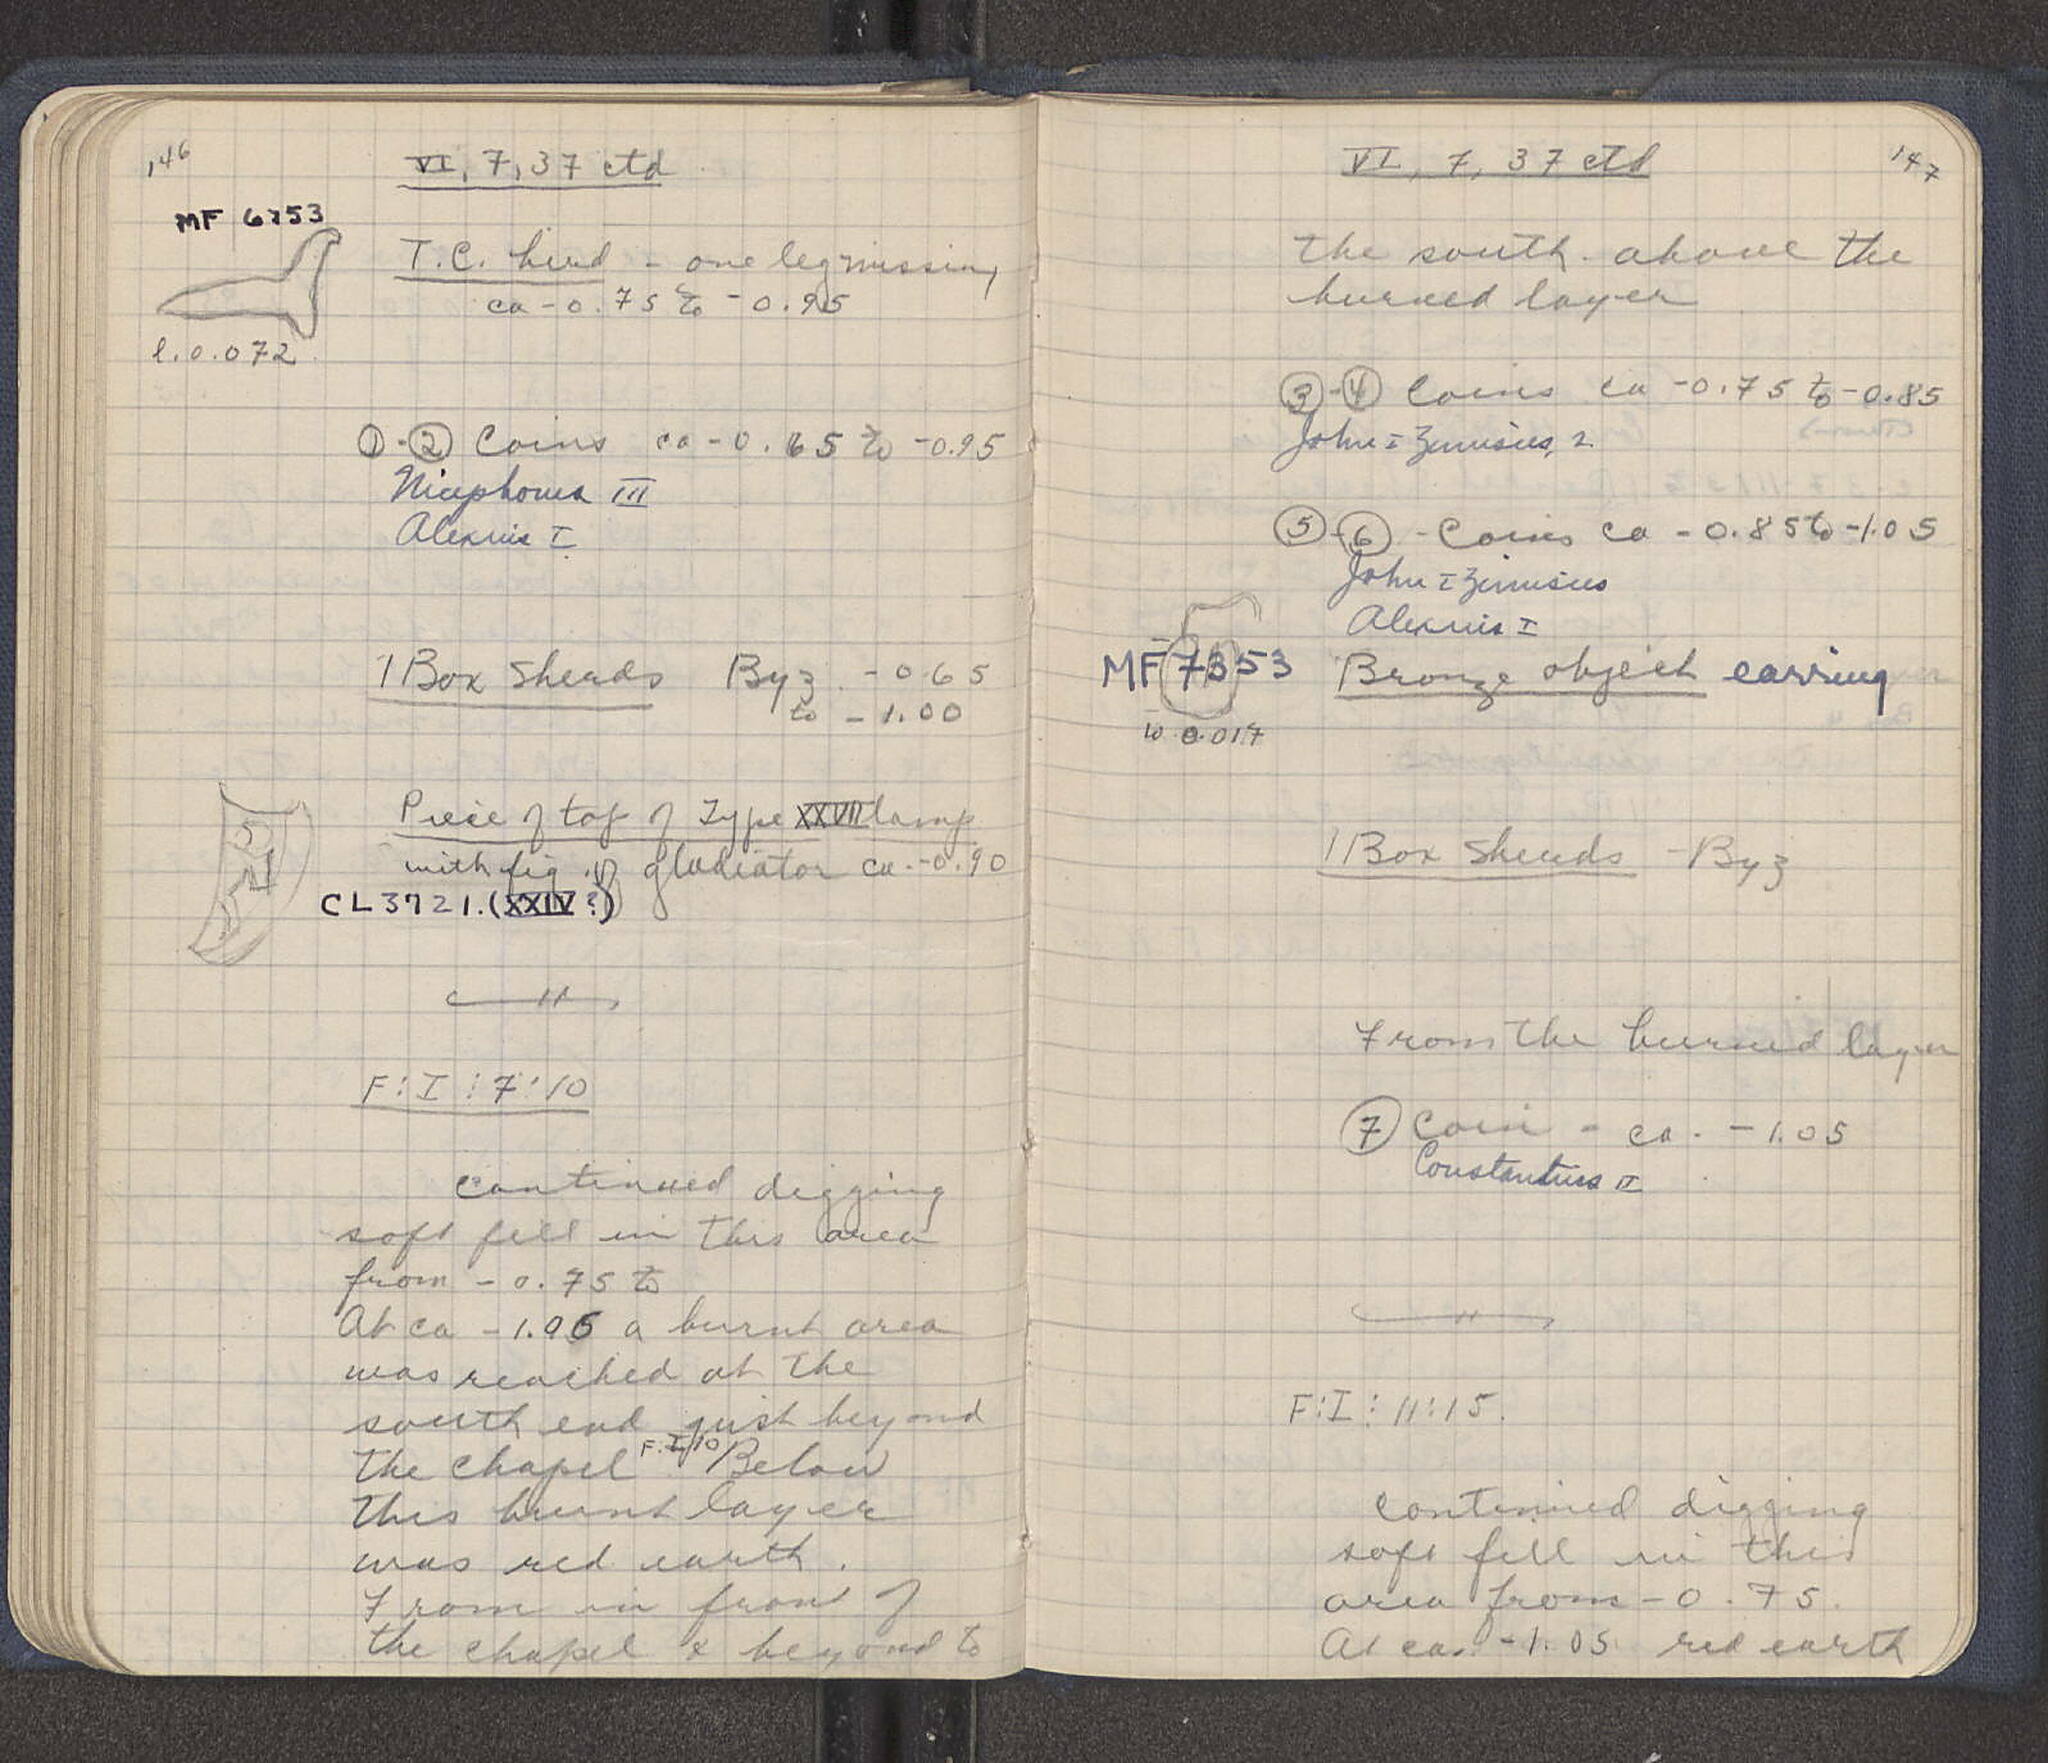 146
VI, 7, 37 ctd
MF 6253
T.C. bird - one leg missing
ca -0.75 to -0.95
l. 0.072
① - ② Coins ca -0.65 to -0.95
Nicephorus III
Alexius I
1 Box Sherds Byz. -0.65
to -1.00
Piece of top of Type XXVII lamp
with fig. of gladiator ca. -0.90
CL 3721. (XXIV?)
F:I:7:10
continued digging
soft fill in this area
from -0.75 to
At ca -1.05 a burnt area
was reached at the
south end just beyond
the chapel F:I/10 Below
this burnt layer
was red earth.
From in front of
the chapel & beyond to
147
VI, 7, 37 ctd
the south above the
burned layer
③-④ Coins ca -0.75 to -0.85
John I Zimisius, 2
⑤-⑥ - Coins ca -0.85 to -1.05
John I Zimisius
Alexius I
MF 7353 Bronze object earring
w 0.017
1 Box Sherds - Byz
From the burned layer
⑦ Coin - ca. -1.05
Constantius II
F:I:11:15.
continued digging
soft fill in this
area from -0.75.
At ca. -1.05 red earth